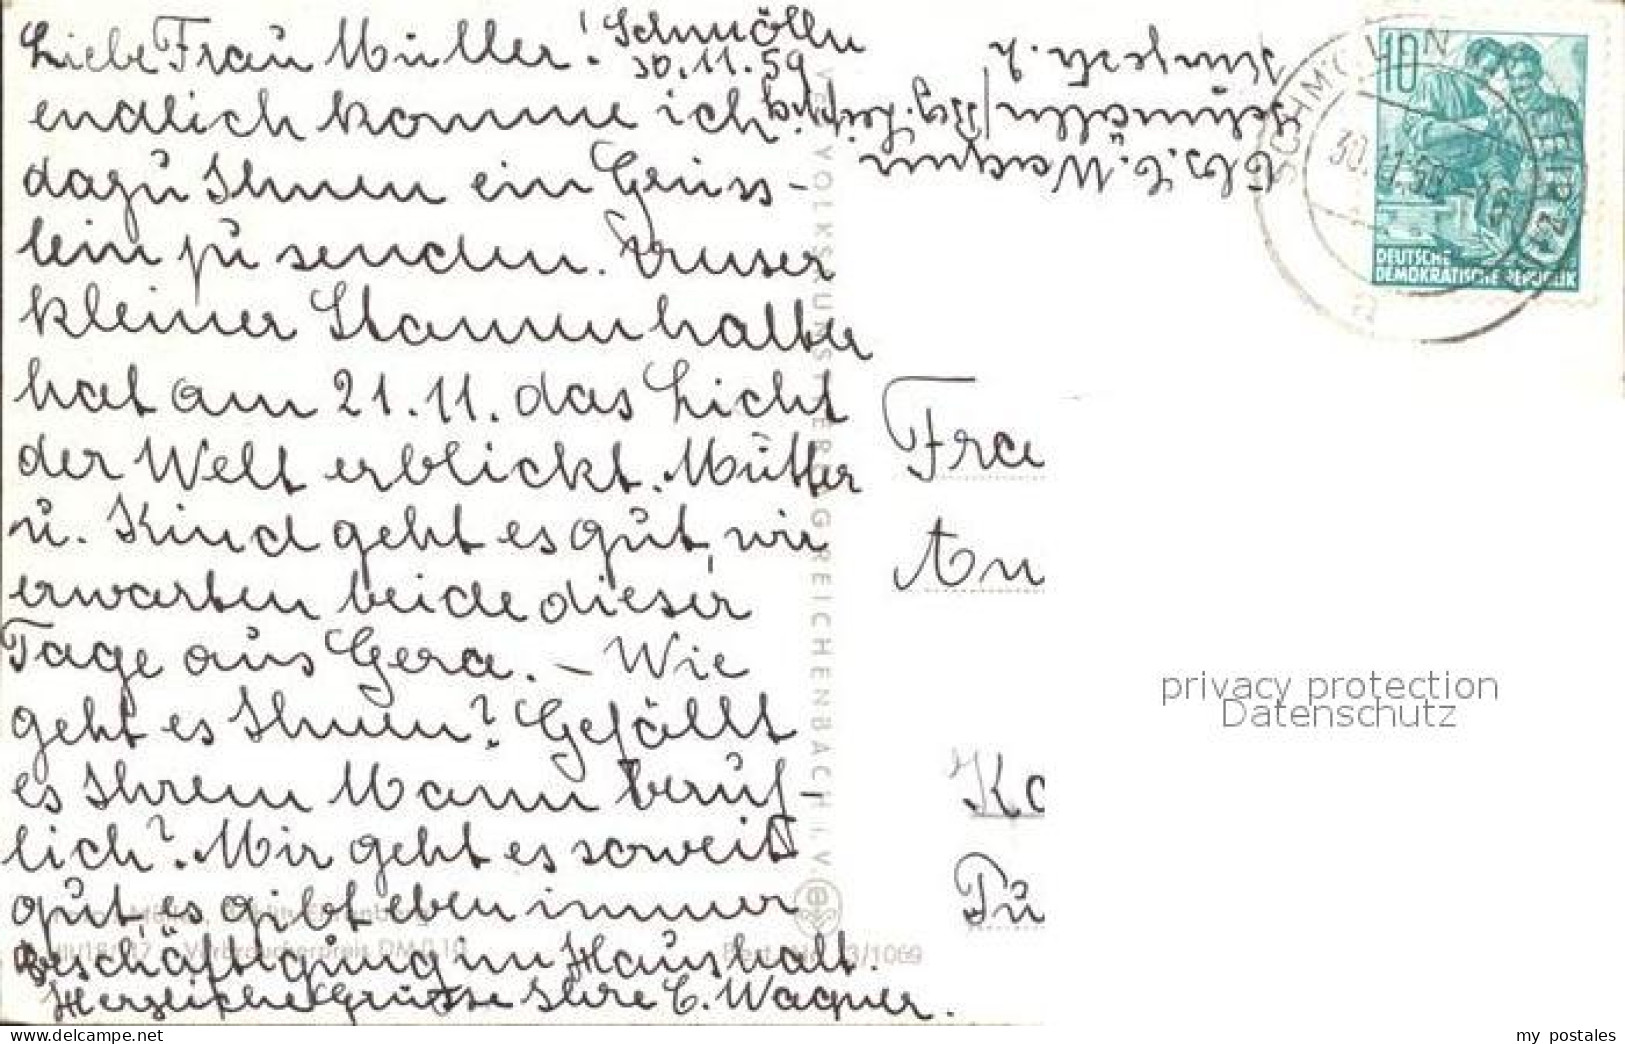 Liebe Frau Müller! Schmölln
30.11.59
endlich komme ich
dazu Ihnen ein Grüss-
lein zu senden. Unser
kleiner Stammhalter
hat am 21.11. das Licht
der Welt erblickt. Mutter
u. Kind geht es gut, wir
erwarten beide dieser
Tage aus Gera. – Wie
geht es Ihnen? Gefällt
es Ihrem Mann beruf-
lich? Mir geht es soweit
gut, es gibt eben immer
Beschäftigung im Haushalt.
Herzliche Grüsse Ihre C. Wagner.
Abs. C. Wagner
Schmölln/Bez. Leipzig
VEB VOLKSKUNSTVERLAG REICHENBACH i. V.
10
DEUTSCHE
DEMOKRATISCHE REPUBLIK
30.11.59
Frau
An
Ko
Verbraucherpreis DM 0,10
3/1069
privacy protection
Datenschutz
www.delcampe.net
my postales